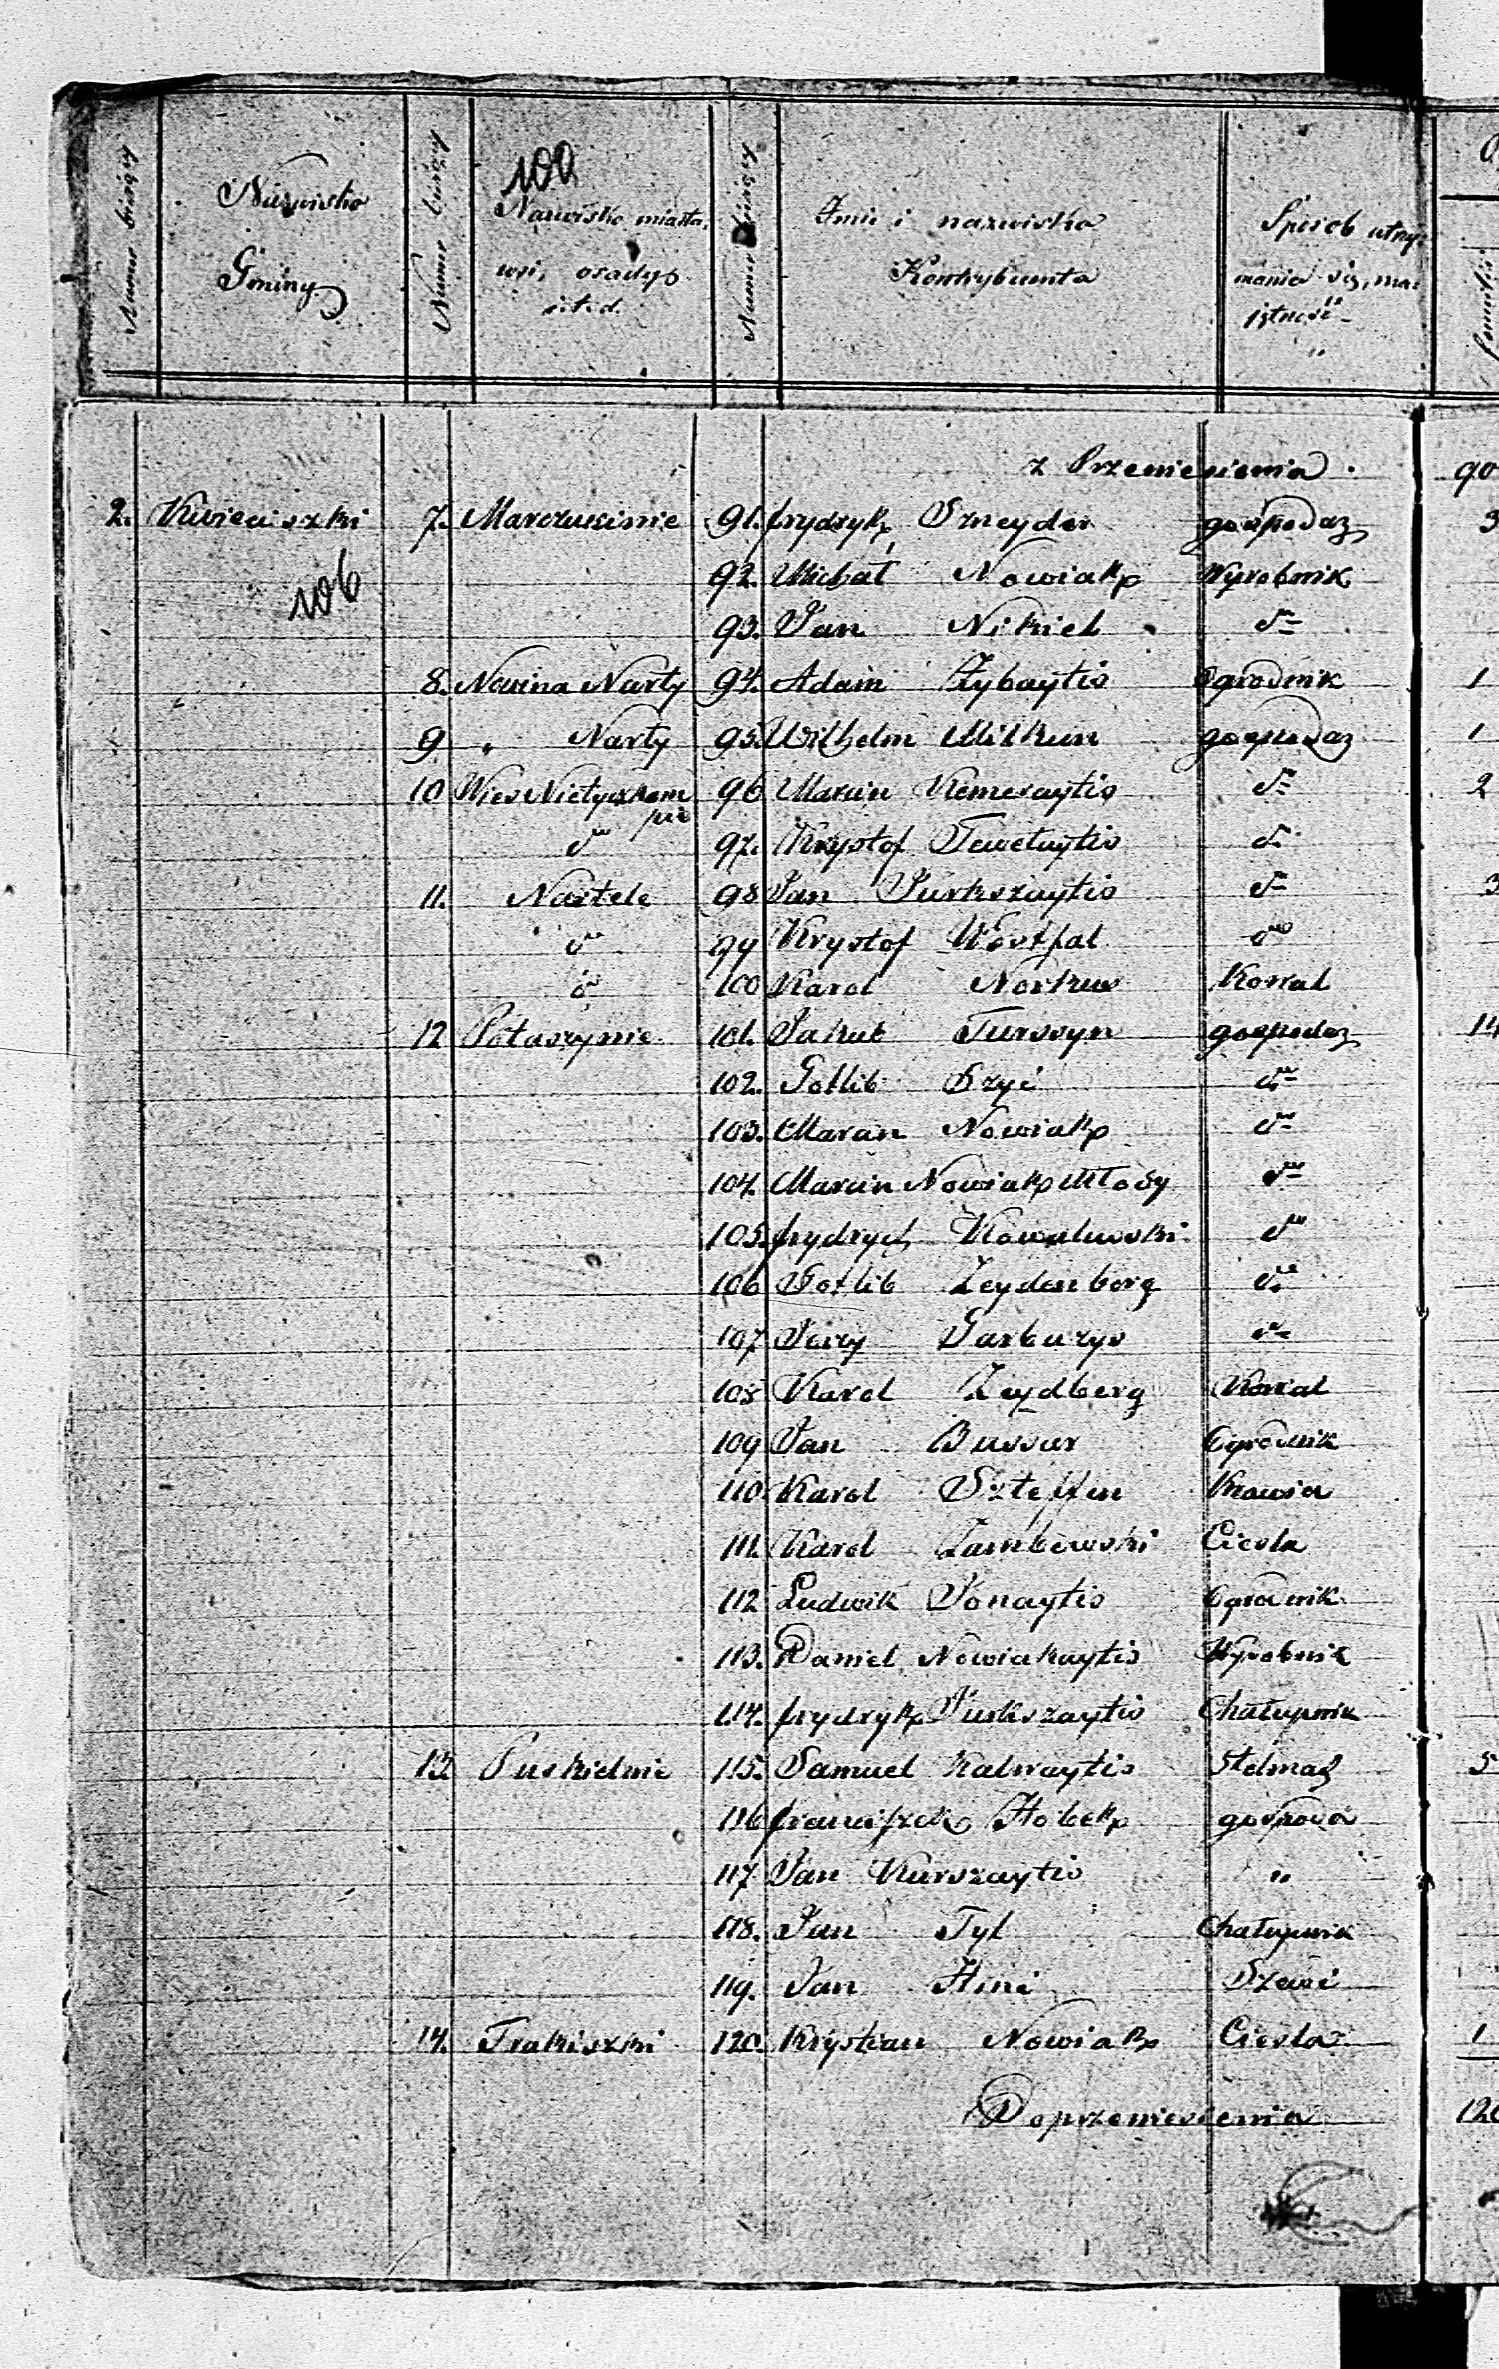 100
Numer bieżący
Nazwisko
Gminy
Numer bieżący
Nazwisko miasta,
wsi, osady
i.t.d.
Numer bieżący
Imie i nazwiska
Kontrybuenta
Sposób utrzy-
mania się, ma-
jętność
z Przeniesienia . 90
2. Kwieciszki 7. Marczukinie 91. frydryk Szneyder gospodaz 3
106
92. Michał Nowiak Wyrobnik
93. Jan Nikiel d-
8. Nowina Narty 94. Adam Zybaytis Ogrodnik 1
9 " Narty 95. Wilhelm Milkun gospodaz 1
10 Wies Nietyczkam 96 Marcin Kemesaytis d- 2
pie
d 97. Krystof Tewetaytis d-
11. Nartele 98 Jan Jurkszaytis d- 3
d 99 Krystof Westfal d
d 100 Karol Norkus Kowal
12 Potaszynie 101. Jakub Turssyn gospodaz 14
102. Gotlib Szyc d-
103. Maran Nowiak d-
104. Marcin Nowiak Młody d-
105. frydrych Kowalewski d
106 Gotlib Zeydenberg d-
107 Jerzy Garburys d-
108 Karol Zeydberg Kowal
109 Jan Bussur Ogrodnik
110 Karol Szteffen Krawia
111. Karol Zambewski Ciesla
112 Ludwik Jonaytis Ogrodnik
113. Daniel Nowiakaytis Wyrobnik
114. frydryk Jurkszaytis Chałupnik
13 Puskielnie 115. Samuel Kalwaytis Stelmach 5
116 franciszek Hobek gospoda
117 Jan Kurszaytis "
118. Jan Tyl Chałupnik
119. Jan Hinc Szewc
14. Trakiszki 120. Krystian Nowiak Ciesla 1
Doprzeniesienia 120